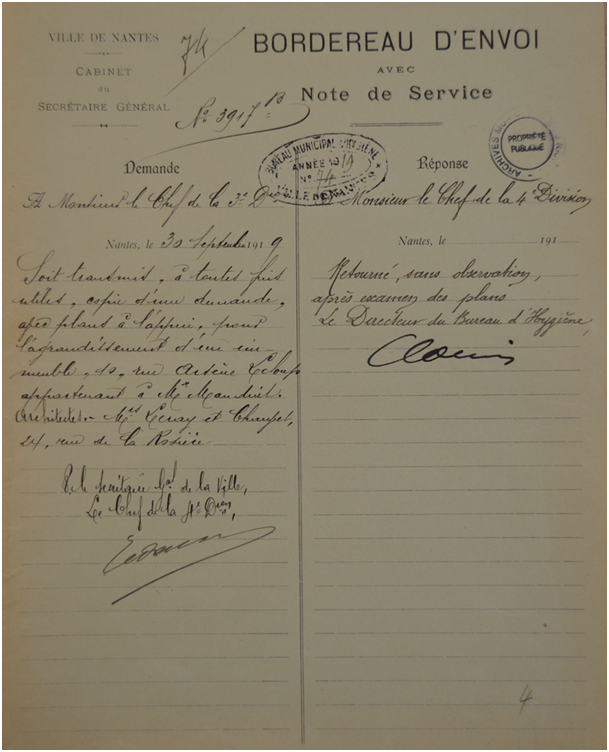 VILLE DE NANTES
CABINET
du
SECRÉTAIRE GÉNÉRAL
74
BORDEREAU D'ENVOI
AVEC
Note de Service
N° 3917 B
BUREAU MUNICIPAL D'HYGIÈNE
ANNÉE 1919
N° 74
VILLE DE NANTES
ARCHIVES
PROPRIÉTÉ
PUBLIQUE
Demande
A Monsieur le Chef de la 3e Don
Nantes, le 30 Septembre 1919
Soit transmis, à toutes fins
utiles, copie d'une demande,
avec plans à l'appui, pour
l'agrandissement d'un im-
meuble, 10, rue Arsène Leloup
appartenant à Mr Mauduit.
Architectes - Mrs Lenay et Chauvet,
24, rue de la Rosière
P. le Secrétaire Gal de la Ville,
Le Chef de la 4e Don,
Réponse
Monsieur le Chef de la 4e Division
Nantes, le 191
Retourné, sans observation,
après examen des plans
Le Directeur du Bureau d'Hygiène,
4